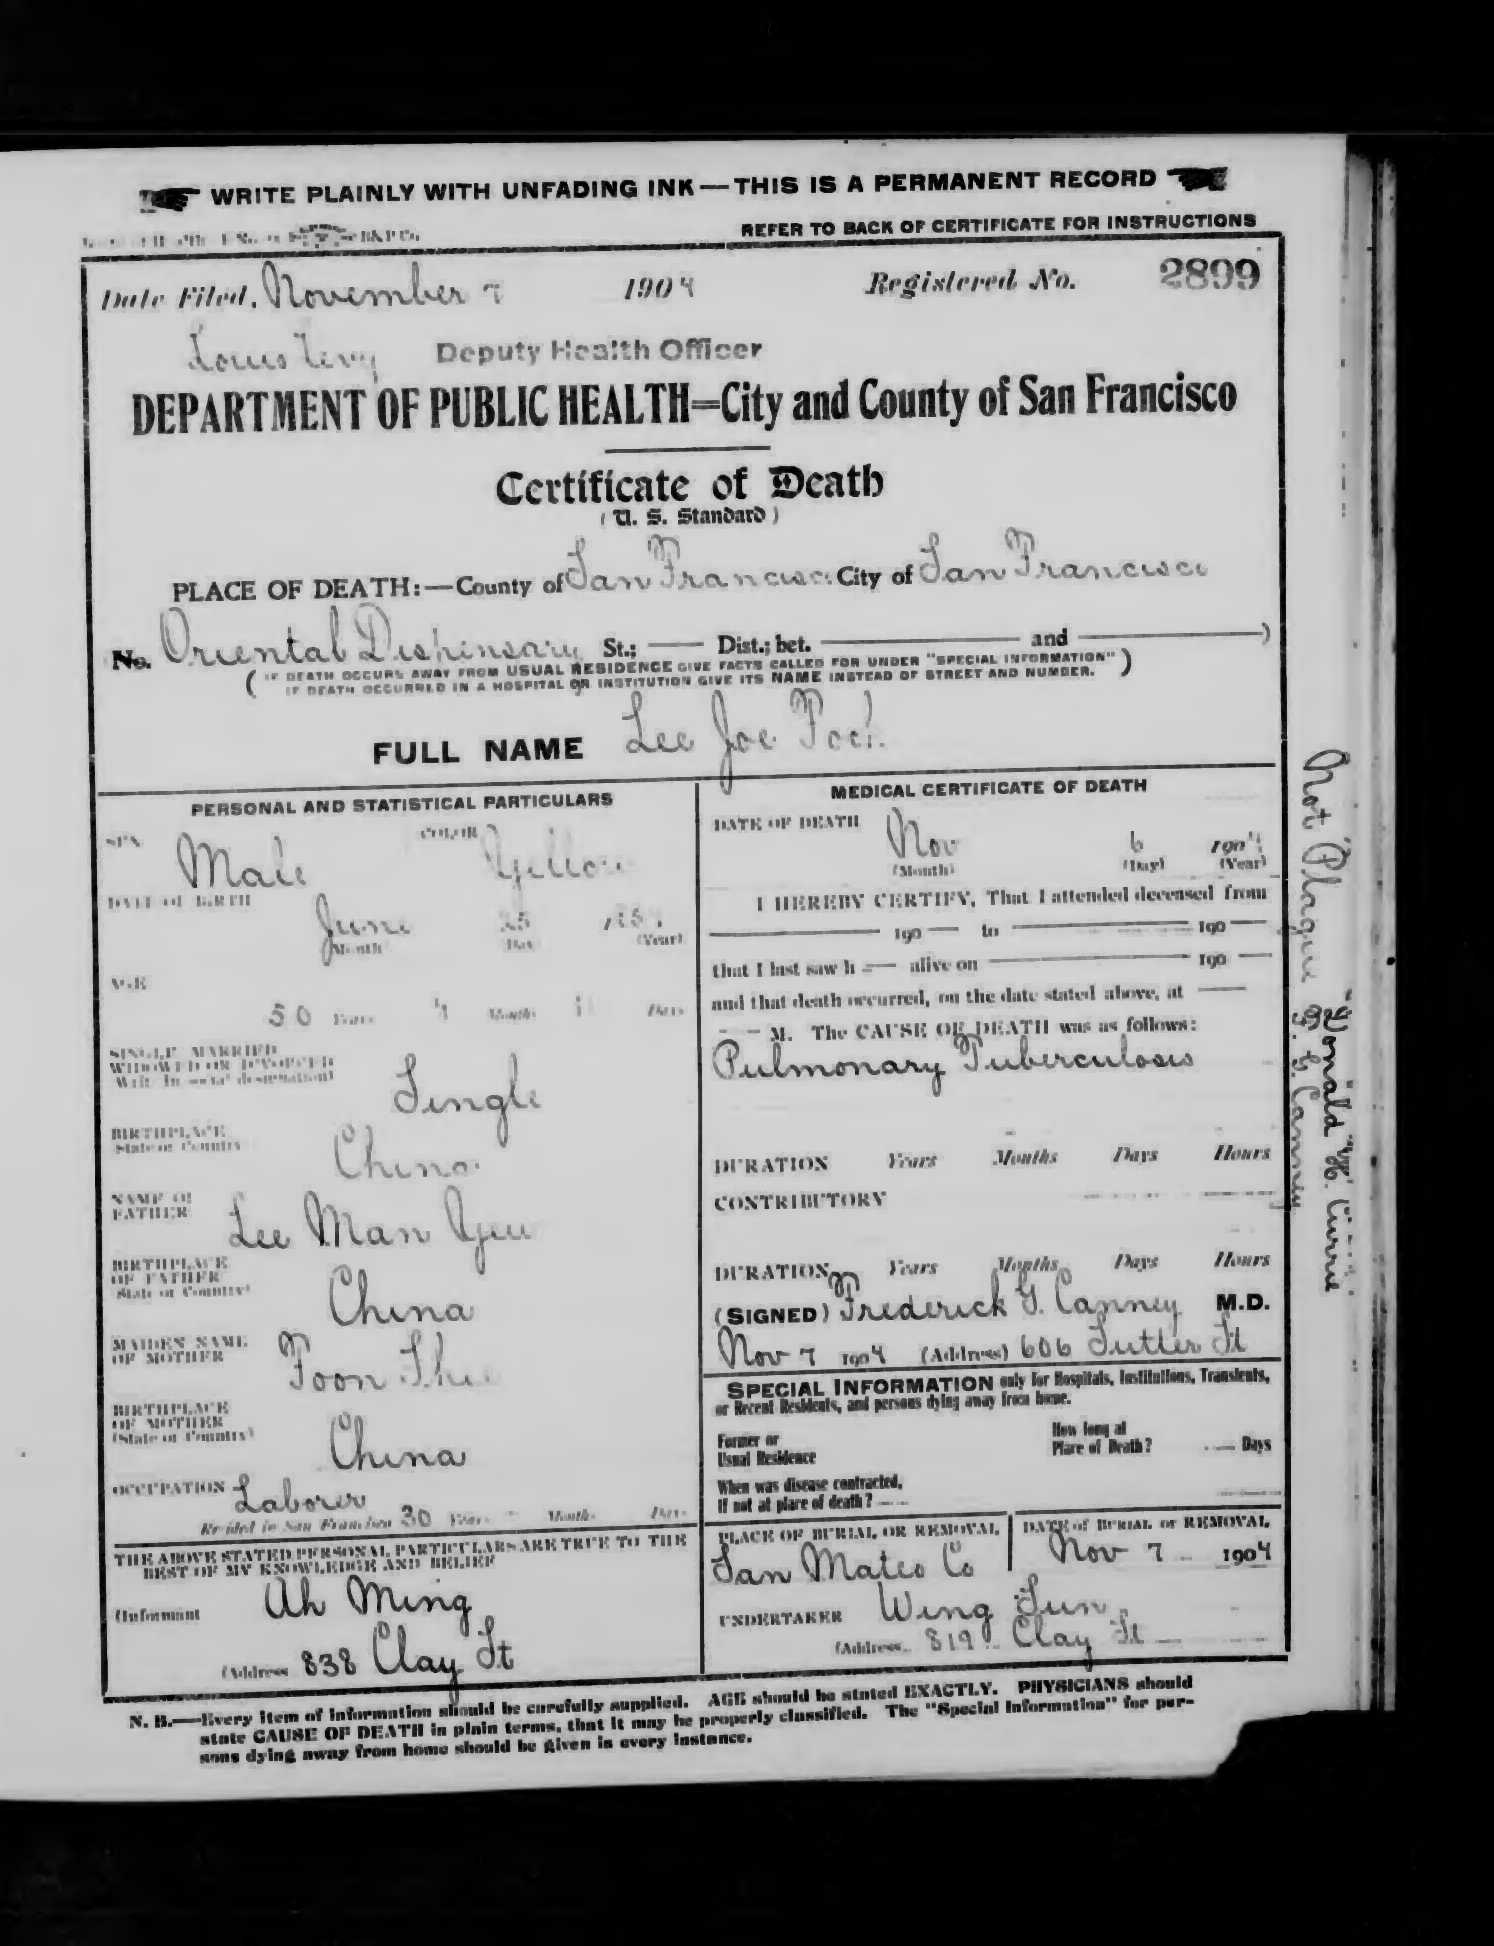 WRITE PLAINLY WITH UNFADING INK — THIS IS A PERMANENT RECORD
REFER TO BACK OF CERTIFICATE FOR INSTRUCTIONS
Date Filed, November 7 1904 Registered No. 2899
Louis Levy Deputy Health Officer
DEPARTMENT OF PUBLIC HEALTH=City and County of San Francisco
Certificate of Death
(U. S. Standard)
PLACE OF DEATH:—County of San Francisco City of San Francisco
No. Oriental Dispensary St.; —— Dist.; bet. —— and ——)
( IF DEATH OCCURS AWAY FROM USUAL RESIDENCE GIVE FACTS CALLED FOR UNDER "SPECIAL INFORMATION" )
IF DEATH OCCURRED IN A HOSPITAL OR INSTITUTION GIVE ITS NAME INSTEAD OF STREET AND NUMBER.
FULL NAME Lee Joe Foo
PERSONAL AND STATISTICAL PARTICULARS
SEX Male COLOR Yellow
DATE OF BIRTH June 25 185
(Month) (Day) (Year)
AGE
50 Years 4 Months Days
SINGLE, MARRIED
WIDOWED OR DIVORCED
(Write in social designation) Single
BIRTHPLACE
(State or Country) China
NAME OF
FATHER Lee Man Yew
BIRTHPLACE
OF FATHER
(State or Country) China
MAIDEN NAME
OF MOTHER Foon Shee
BIRTHPLACE
OF MOTHER
(State or Country) China
OCCUPATION Laborer
Resided in San Francisco 30 Years - Months Days
THE ABOVE STATED PERSONAL PARTICULARS ARE TRUE TO THE
BEST OF MY KNOWLEDGE AND BELIEF
(Informant Ah Ming
(Address 838 Clay St
MEDICAL CERTIFICATE OF DEATH
DATE OF DEATH Nov 6 1904
(Month) (Day) (Year)
I HEREBY CERTIFY, That I attended deceased from
—— 190 — to —— 190 —
that I last saw h — alive on —— 190 —
and that death occurred, on the date stated above, at ——
— M. The CAUSE OF DEATH was as follows:
Pulmonary Tuberculosis
DURATION Years Months Days Hours
CONTRIBUTORY
DURATION Years Months Days Hours
(SIGNED) Frederick G. Canney M.D.
Nov 7 1904 (Address) 606 Sutter St
SPECIAL INFORMATION only for Hospitals, Institutions, Transients,
or Recent Residents, and persons dying away from home.
Former or
Usual Residence
How long at
Place of Death? —— Days
When was disease contracted,
If not at place of death? ——
PLACE OF BURIAL OR REMOVAL
San Mateo Co
DATE of BURIAL or REMOVAL
Nov 7 1904
UNDERTAKER Wing Sun
(Address 819 Clay St
N. B.—Every item of information should be carefully supplied. AGE should be stated EXACTLY. PHYSICIANS should
state CAUSE OF DEATH in plain terms, that it may be properly classified. The "Special Information" for per-
sons dying away from home should be given in every instance.
Not Plague F. G. Canney
Donald H. Currie